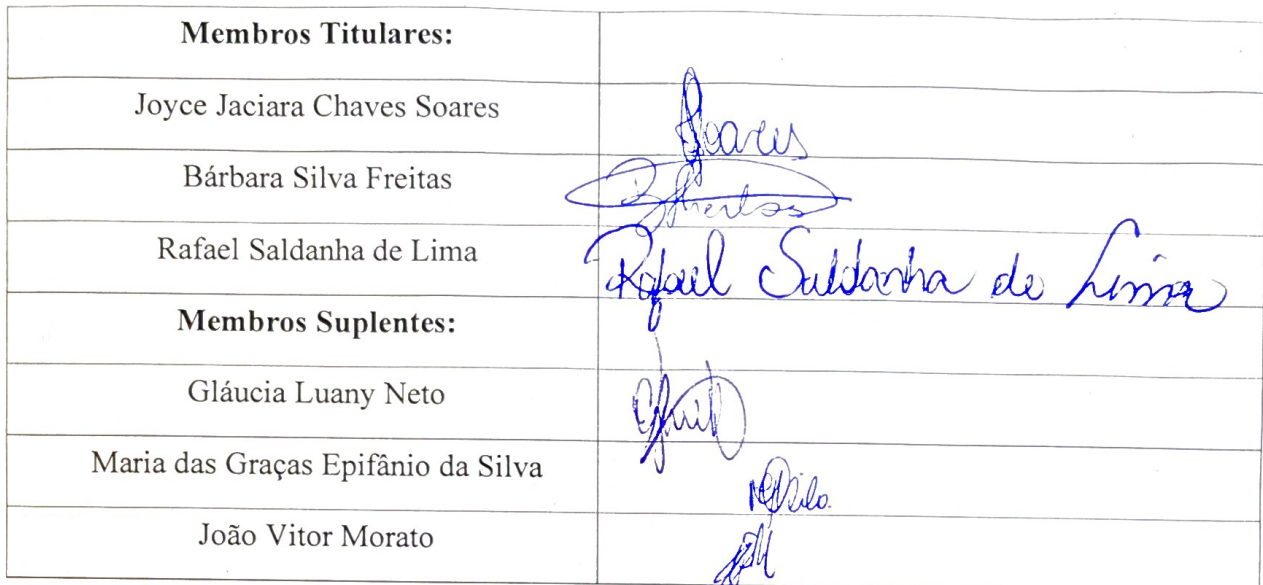 Membros Titulares:
Joyce Jaciara Chaves Soares
Soares
Bárbara Silva Freitas
Rafael Saldanha de Lima
Rafael Saldanha de Lima
Membros Suplentes:
Gláucia Luany Neto
Maria das Graças Epifânio da Silva
João Vitor Morato